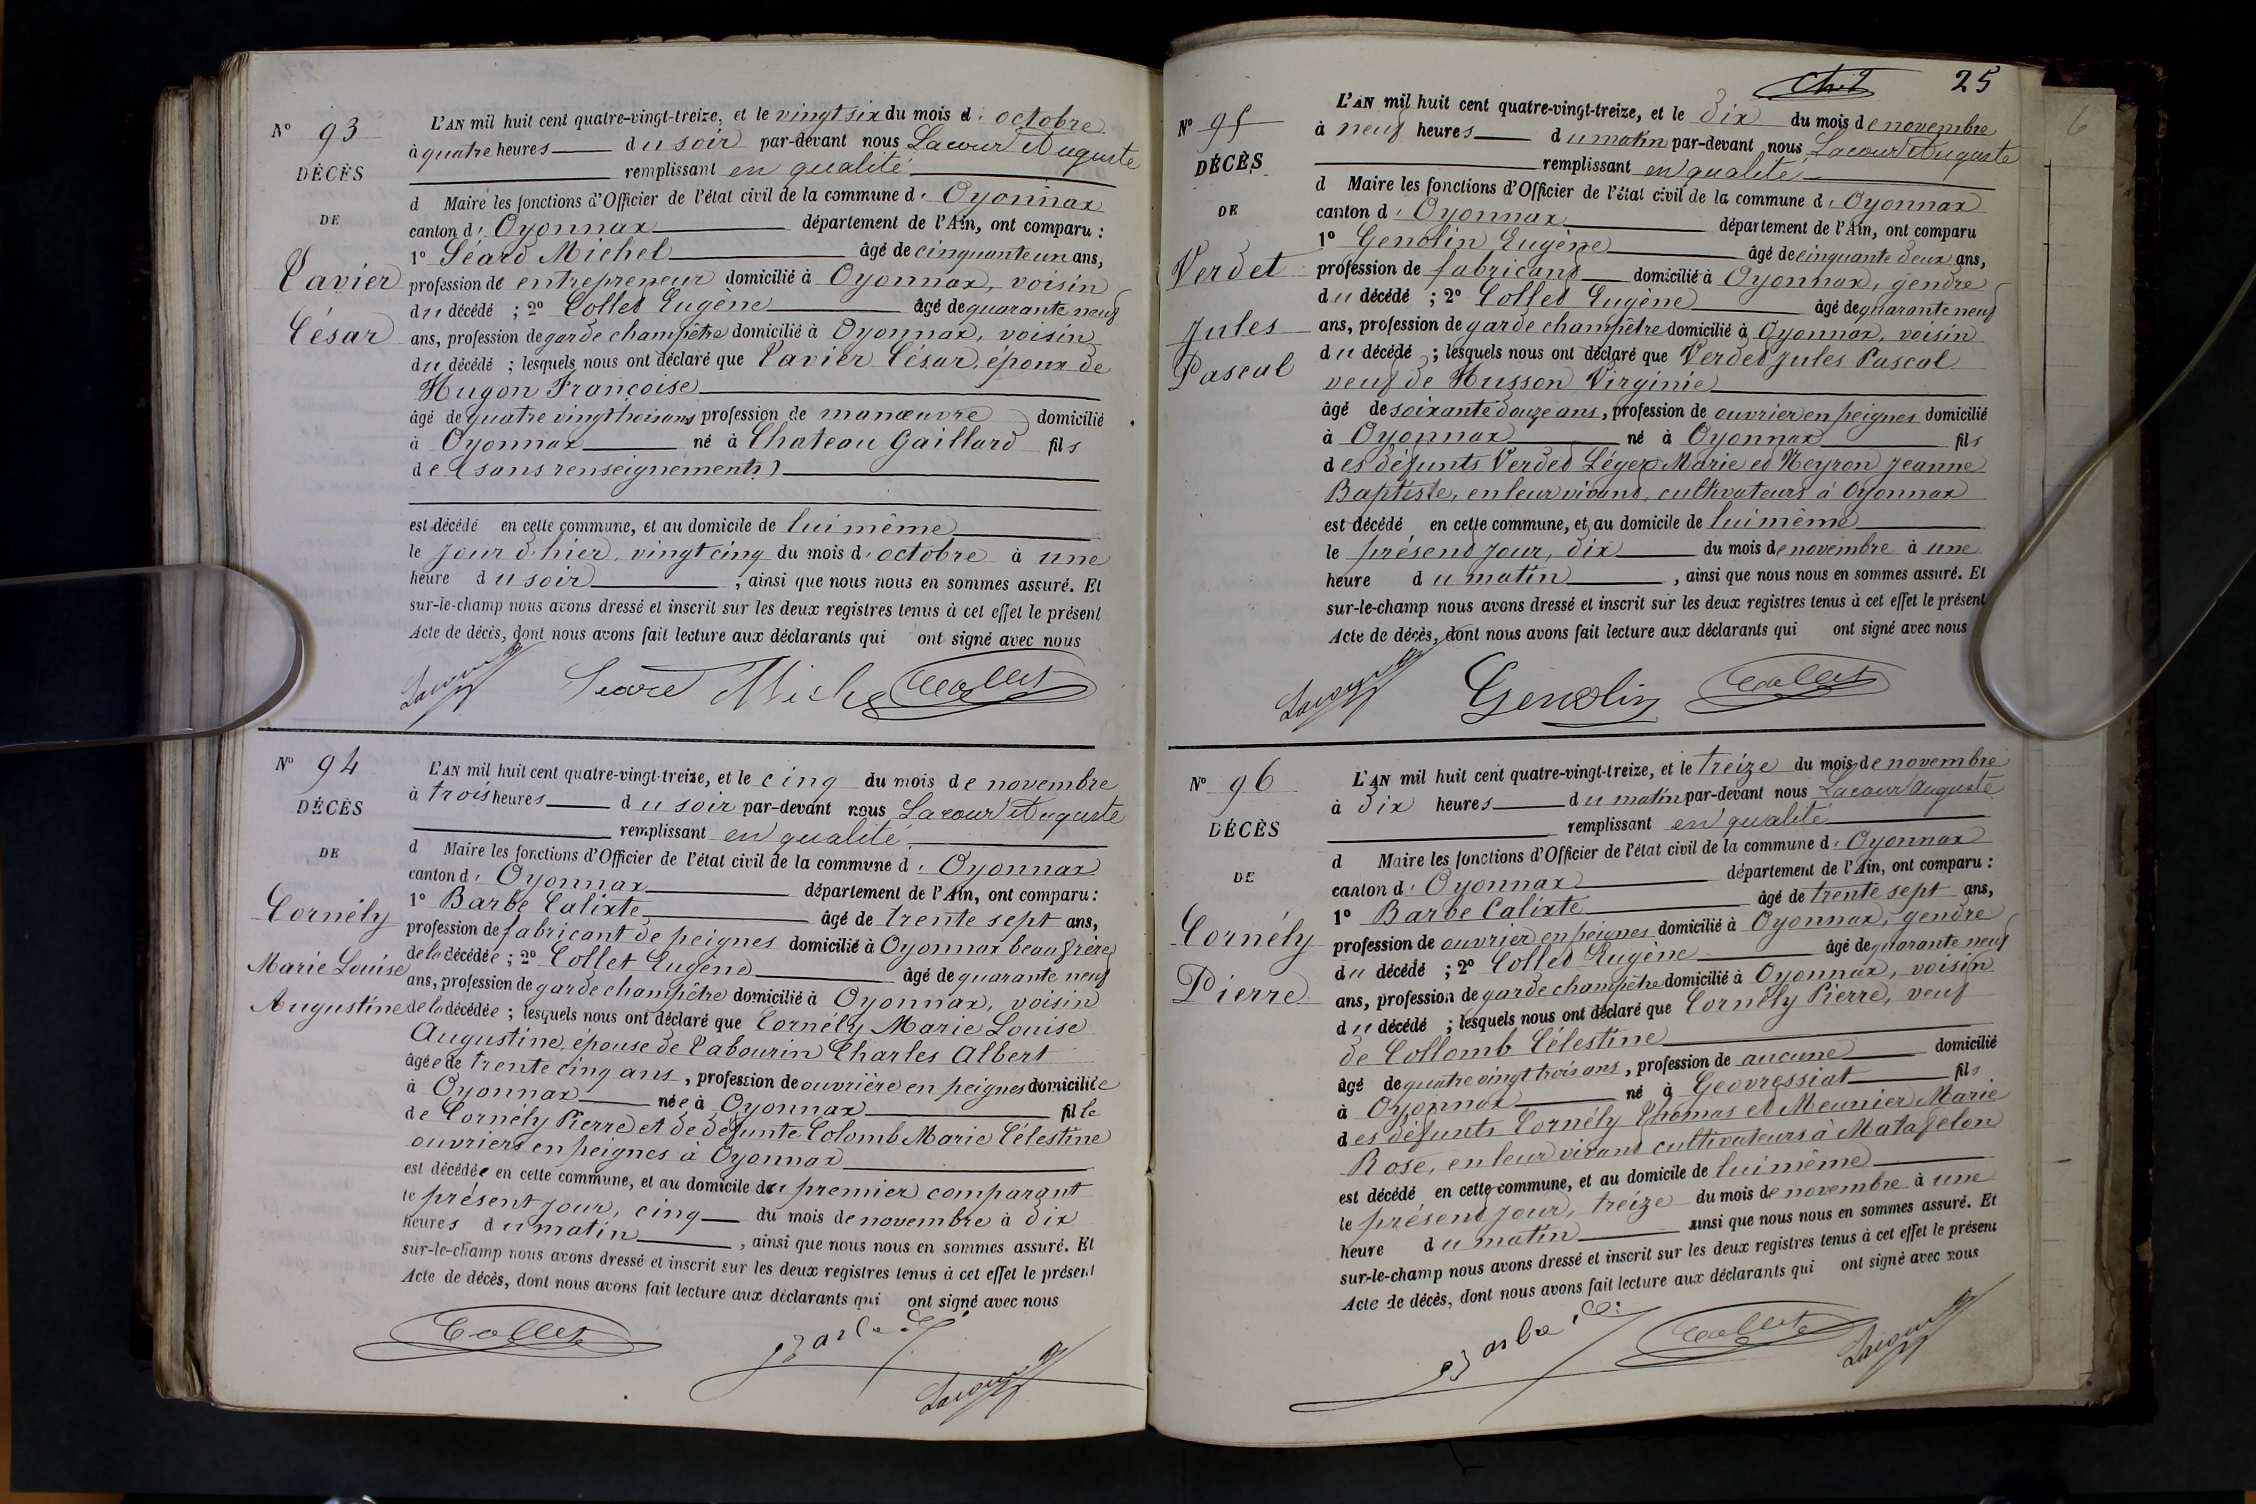 Nº 93
DÉCÈS
DE
Pavier
César
L'AN mil huit cent quatre-vingt-treize, et le vingt six du mois d'octobre
à quatre heures du soir par-devant nous Lacour Auguste
remplissant en qualité
d Maire les fonctions d'Officier de l'état civil de la commune d'Oyonnax
canton d'Oyonnax département de l'Ain, ont comparu :
1º Séard Michel âgé de cinquante un ans,
profession de entrepreneur domicilié à Oyonnax, voisin
du décédé ; 2º Collet Eugène âgé de quarante neuf
ans, profession de garde champêtre domicilié à Oyonnax, voisin
du décédé ; lesquels nous ont déclaré que Pavier César, époux de
Hugon Françoise
âgé de quatre vingt trois ans profession de manœuvre domicilié
à Oyonnax né à Chateau Gaillard fils
de (sans renseignements)
est décédé en cette commune, et au domicile de lui même
le jour d'hier, vingt cinq du mois d'octobre à une
heure du soir, ainsi que nous nous en sommes assuré. Et
sur-le-champ nous avons dressé et inscrit sur les deux registres tenus à cet effet le présent
Acte de décès, dont nous avons fait lecture aux déclarants qui ont signé avec nous
Lacour Seard Michel Collet
Nº 94
DÉCÈS
DE
Cornély
Marie Louise
Augustine
L'AN mil huit cent quatre-vingt-treize, et le cinq du mois de novembre
à trois heures du soir par-devant nous Lacour Auguste
remplissant en qualité
d Maire les fonctions d'Officier de l'état civil de la commune d'Oyonnax
canton d'Oyonnax département de l'Ain, ont comparu :
1º Barbe Calixte âgé de trente sept ans,
profession de fabricant de peignes domicilié à Oyonnax beau frère
de la décédée ; 2º Collet Eugène âgé de quarante neuf
ans, profession de garde champêtre domicilié à Oyonnax, voisin
de la décédée ; lesquels nous ont déclaré que Cornély Marie Louise
Augustine, épouse de Tabourin Charles Albert
âgée de trente cinq ans, profession de ouvrière en peignes domiciliée
à Oyonnax née à Oyonnax fille
de Cornély Pierre et de défunte Colomb Marie Célestine
ouvriers en peignes à Oyonnax
est décédée en cette commune, et au domicile du premier comparant
le présent jour, cinq du mois de novembre à dix
heures du matin, ainsi que nous nous en sommes assuré. Et
sur-le-champ nous avons dressé et inscrit sur les deux registres tenus à cet effet le présent
Acte de décès, dont nous avons fait lecture aux déclarants qui ont signé avec nous
Collet Barbe C. Lacour
25
Nº 95
DÉCÈS
DE
Verdet
Jules
Pascal
L'AN mil huit cent quatre-vingt-treize, et le dix du mois de novembre
à neuf heures du matin par-devant nous Lacour Auguste
remplissant en qualité
d Maire les fonctions d'Officier de l'état civil de la commune d'Oyonnax
canton d'Oyonnax département de l'Ain, ont comparu
1º Genolin Eugène âgé de cinquante deux ans,
profession de fabricant domicilié à Oyonnax, gendre
du décédé ; 2º Collet Eugène âgé de quarante neuf
ans, profession de garde champêtre domicilié à Oyonnax, voisin
du décédé ; lesquels nous ont déclaré que Verdet Jules Pascal
veuf de Husson Virginie
âgé de soixante douze ans, profession de ouvrier en peignes domicilié
à Oyonnax né à Oyonnax fils
des défunts Verdet Léger Marie et Neyron Jeanne
Baptiste, en leur vivant, cultivateurs à Oyonnax
est décédé en cette commune, et au domicile de lui même
le présent jour, dix du mois de novembre à une
heure du matin, ainsi que nous nous en sommes assuré. Et
sur-le-champ nous avons dressé et inscrit sur les deux registres tenus à cet effet le présent
Acte de décès, dont nous avons fait lecture aux déclarants qui ont signé avec nous
Lacour Genolin Collet
Nº 96
DÉCÈS
DE
Cornély
Pierre
L'AN mil huit cent quatre-vingt-treize, et le treize du mois de novembre
à dix heures du matin par-devant nous Lacour Auguste
remplissant en qualité
d Maire les fonctions d'Officier de l'état civil de la commune d'Oyonnax
canton d'Oyonnax département de l'Ain, ont comparu :
1º Barbe Calixte âgé de trente sept ans,
profession de ouvrier en peignes domicilié à Oyonnax, gendre
du décédé ; 2º Collet Eugène âgé de quarante neuf
ans, profession de garde champêtre domicilié à Oyonnax, voisin
du décédé ; lesquels nous ont déclaré que Cornély Pierre, veuf
de Collomb Célestine
âgé de quatre vingt trois ans, profession de aucune domicilié
à Oyonnax né à Geovressiat fils
des défunts Cornély Thomas et Meunier Marie
Rose, en leur vivant cultivateurs à Matafelon
est décédé en cette commune, et au domicile de lui même
le présent jour, treize du mois de novembre à une
heure du matin ainsi que nous nous en sommes assuré. Et
sur-le-champ nous avons dressé et inscrit sur les deux registres tenus à cet effet le présent
Acte de décès, dont nous avons fait lecture aux déclarants qui ont signé avec nous
Barbe C. Collet Lacour